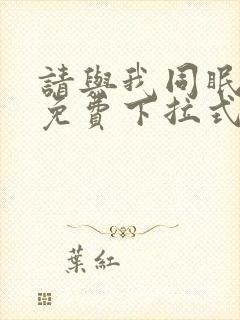 請與我同眠
免費下拉式
葉紅